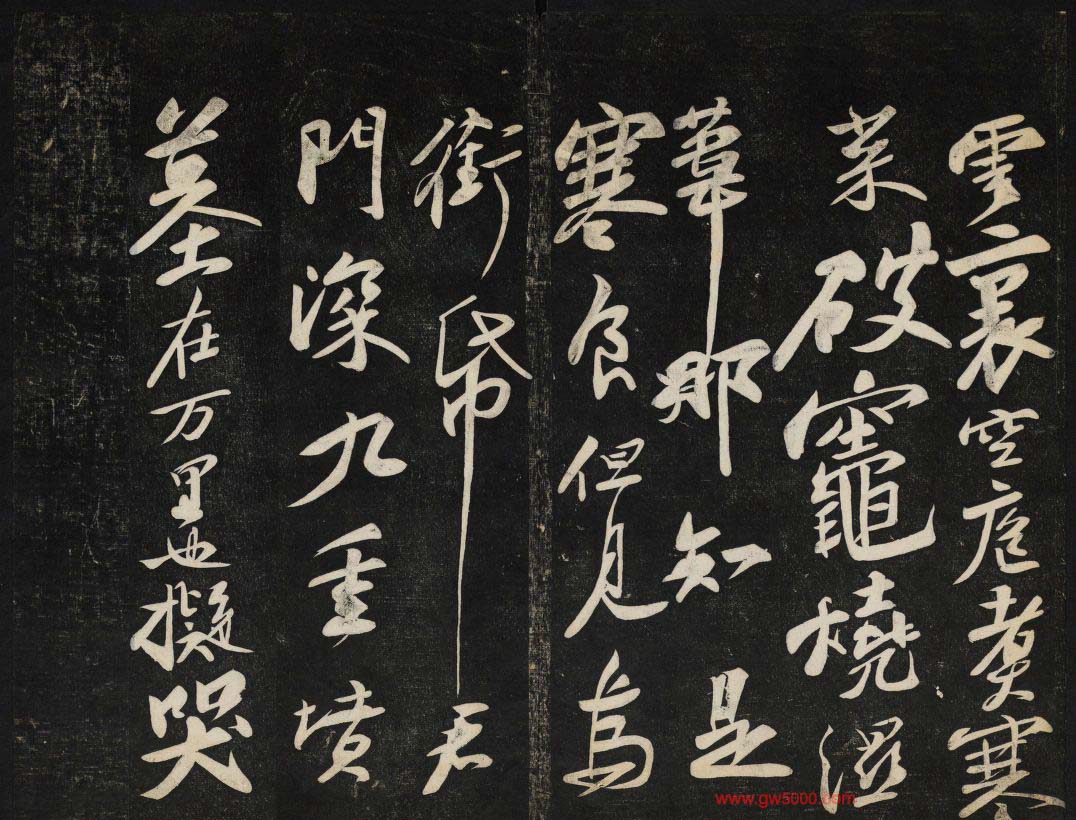 雲裏空庖煮寒
菜破竈燒濕
葦那知是
寒食但見烏
銜帋君
門深九重墳
墓在万里也擬哭
www.gw5000.com